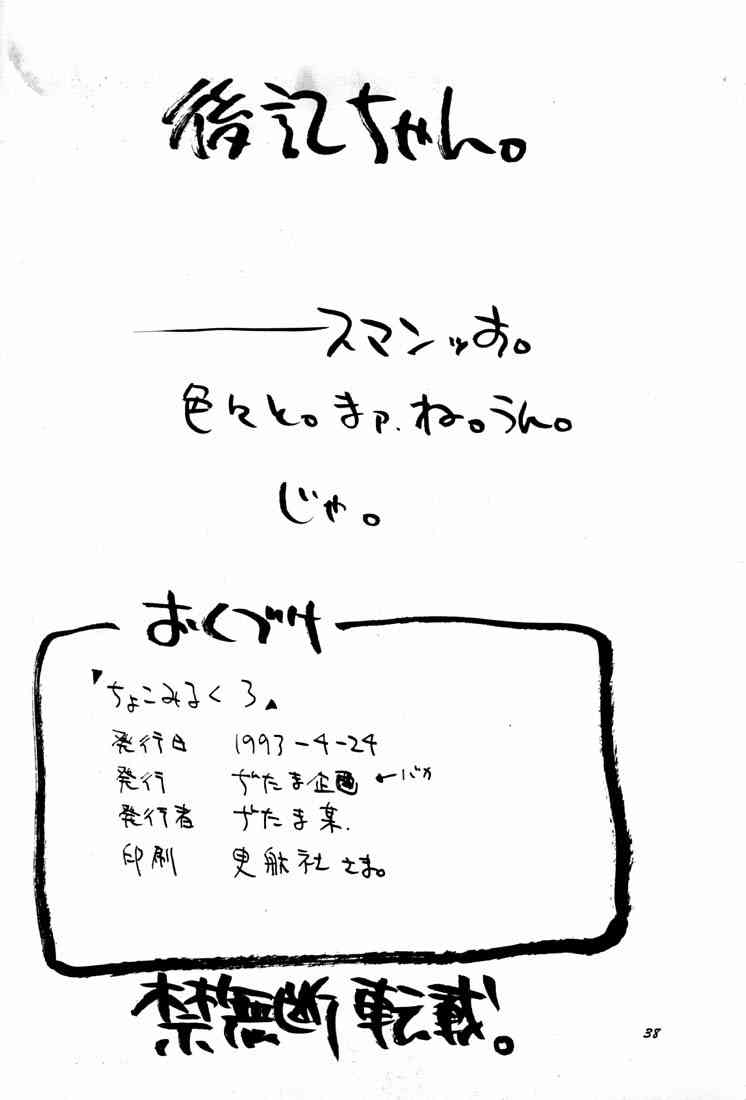 後記ちゃん。
――スマンッす。
色々と。まァ、ね。うん。
じゃ。
おくづけ
ちょこみるく 3
発行日 1993-4-24
発行 ぢたま企画 ←バカ
発行者 ぢたま某.
印刷 更航社さま。
禁無断転載。
38